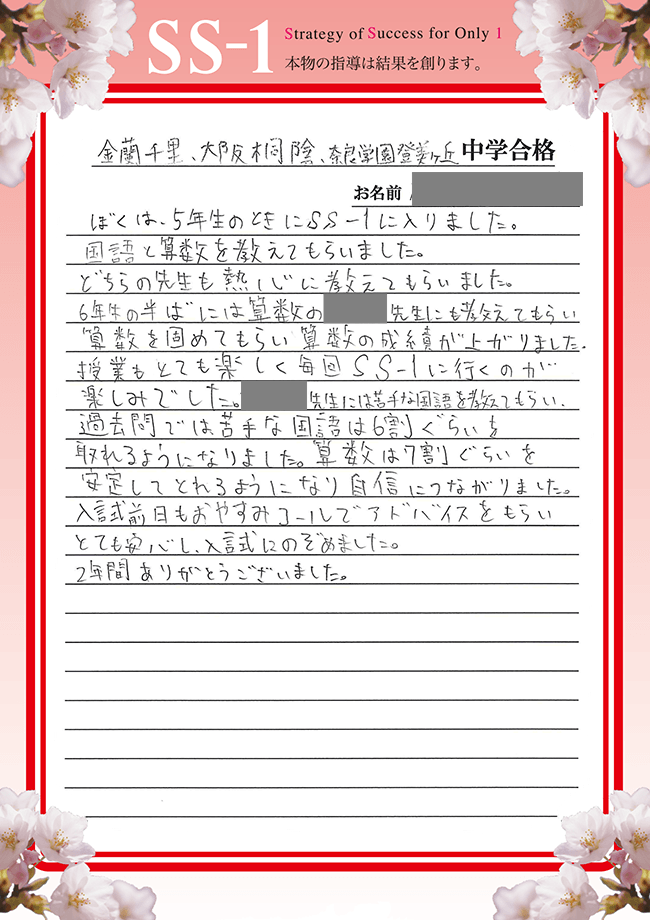 SS-1
Strategy of Success for Only 1
本物の指導は結果を創ります。
金蘭千里、大阪桐陰、奈良学園登美ヶ丘 中学合格
お名前
ぼくは、5年生のときにSS-1に入りました。
国語と算数を教えてもらいました。
どちらの先生も熱心に教えてもらいました。
6年生の半ばには算数の 先生にも教えてもらい
算数を固めてもらい算数の成績が上がりました。
授業もとても楽しく毎回SS-1に行くのが
楽しみでした。 先生には苦手な国語を教えてもらい、
過去問では苦手な国語は6割ぐらいを
取れるようになりました。算数は7割ぐらいを
安定してとれるようになり自信につながりました。
入試前日もおやすみコールでアドバイスをもらい
とても安心し、入試にのぞめました。
2年間ありがとうございました。